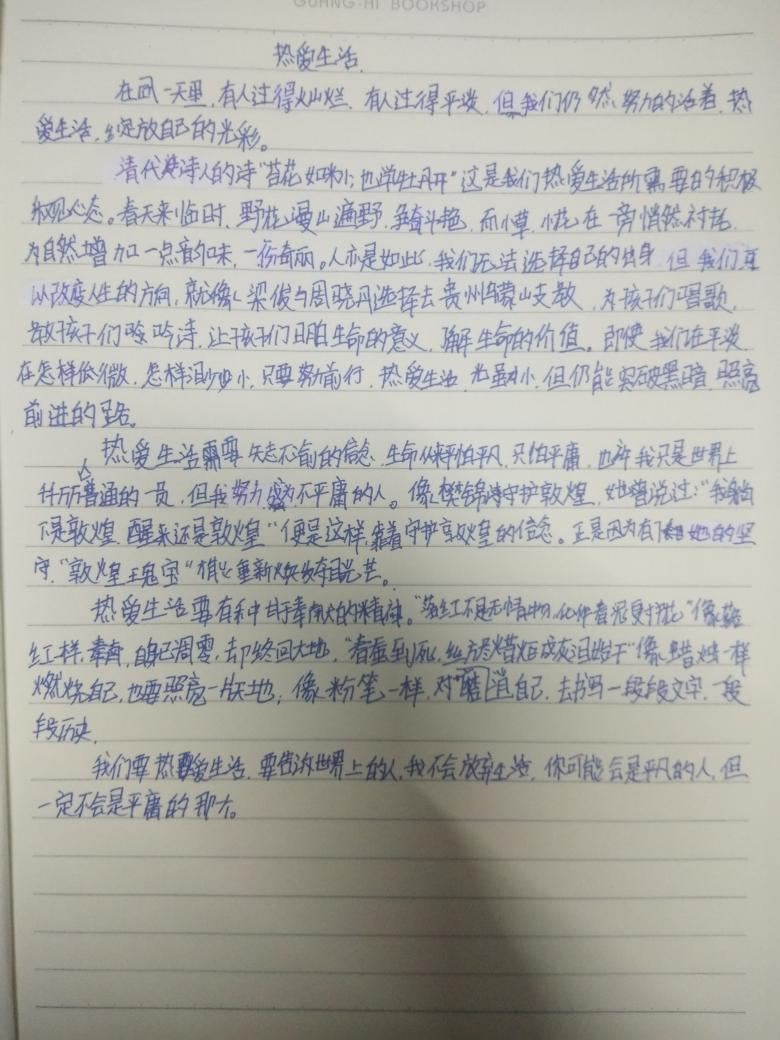 GUANG-HI BOOKSHOP
热爱生活
在同一天里,有人过得灿烂,有人过得平淡,但我们仍然努力的活着,热
爱生活,绽放自己的光彩。
清代诗人的诗“苔花如米小,也学牡丹开”这是我们热爱生活所需要的积极
乐观心态。春天来临时,野花漫山遍野,争奇斗艳,而小草,小花在一旁悄然衬托,
为自然增加一点韵味,一份奇丽。人亦是如此,我们无法选择自己的出身,但我们可
以改变人生的方向,就像梁俊与周晓丹选择去贵州乌蒙山支教,为孩子们唱歌,
教孩子们吟诗,让孩子们明白生命的意义,理解生命的价值。即使我们在平淡,
在怎样低微,怎样渺小,只要努力前行,热爱生活,光虽小,但仍能突破黑暗,照亮
前进的路。
热爱生活需要矢志不渝的信念,生命从来不怕平凡,只怕平庸,也许我只是世界上
千千万万普通的一员,但我努力成为不平庸的人。像樊锦诗守护敦煌,她曾说过:“我
不是敦煌,醒来还是敦煌”便是这样,靠着守护敦煌的信念。正是因为有她的坚
守,“敦煌瑰宝”才重新焕发夺目光芒。
热爱生活要有种甘于奉献的精神。“落红不是无情物,化作春泥更护花”像落
红一样,奉献,自己凋零,却终回大地,“春蚕到死丝方尽,蜡炬成灰泪始干”像蜡烛一样
燃烧自己,也要照亮一片天地,像粉笔一样,磨消自己,去书写一段段文字,一段
段历史。
我们要热爱生活,要告诉世界上的人,我不会放弃生活,你可能会是平凡的人,但
一定不会是平庸的那个。